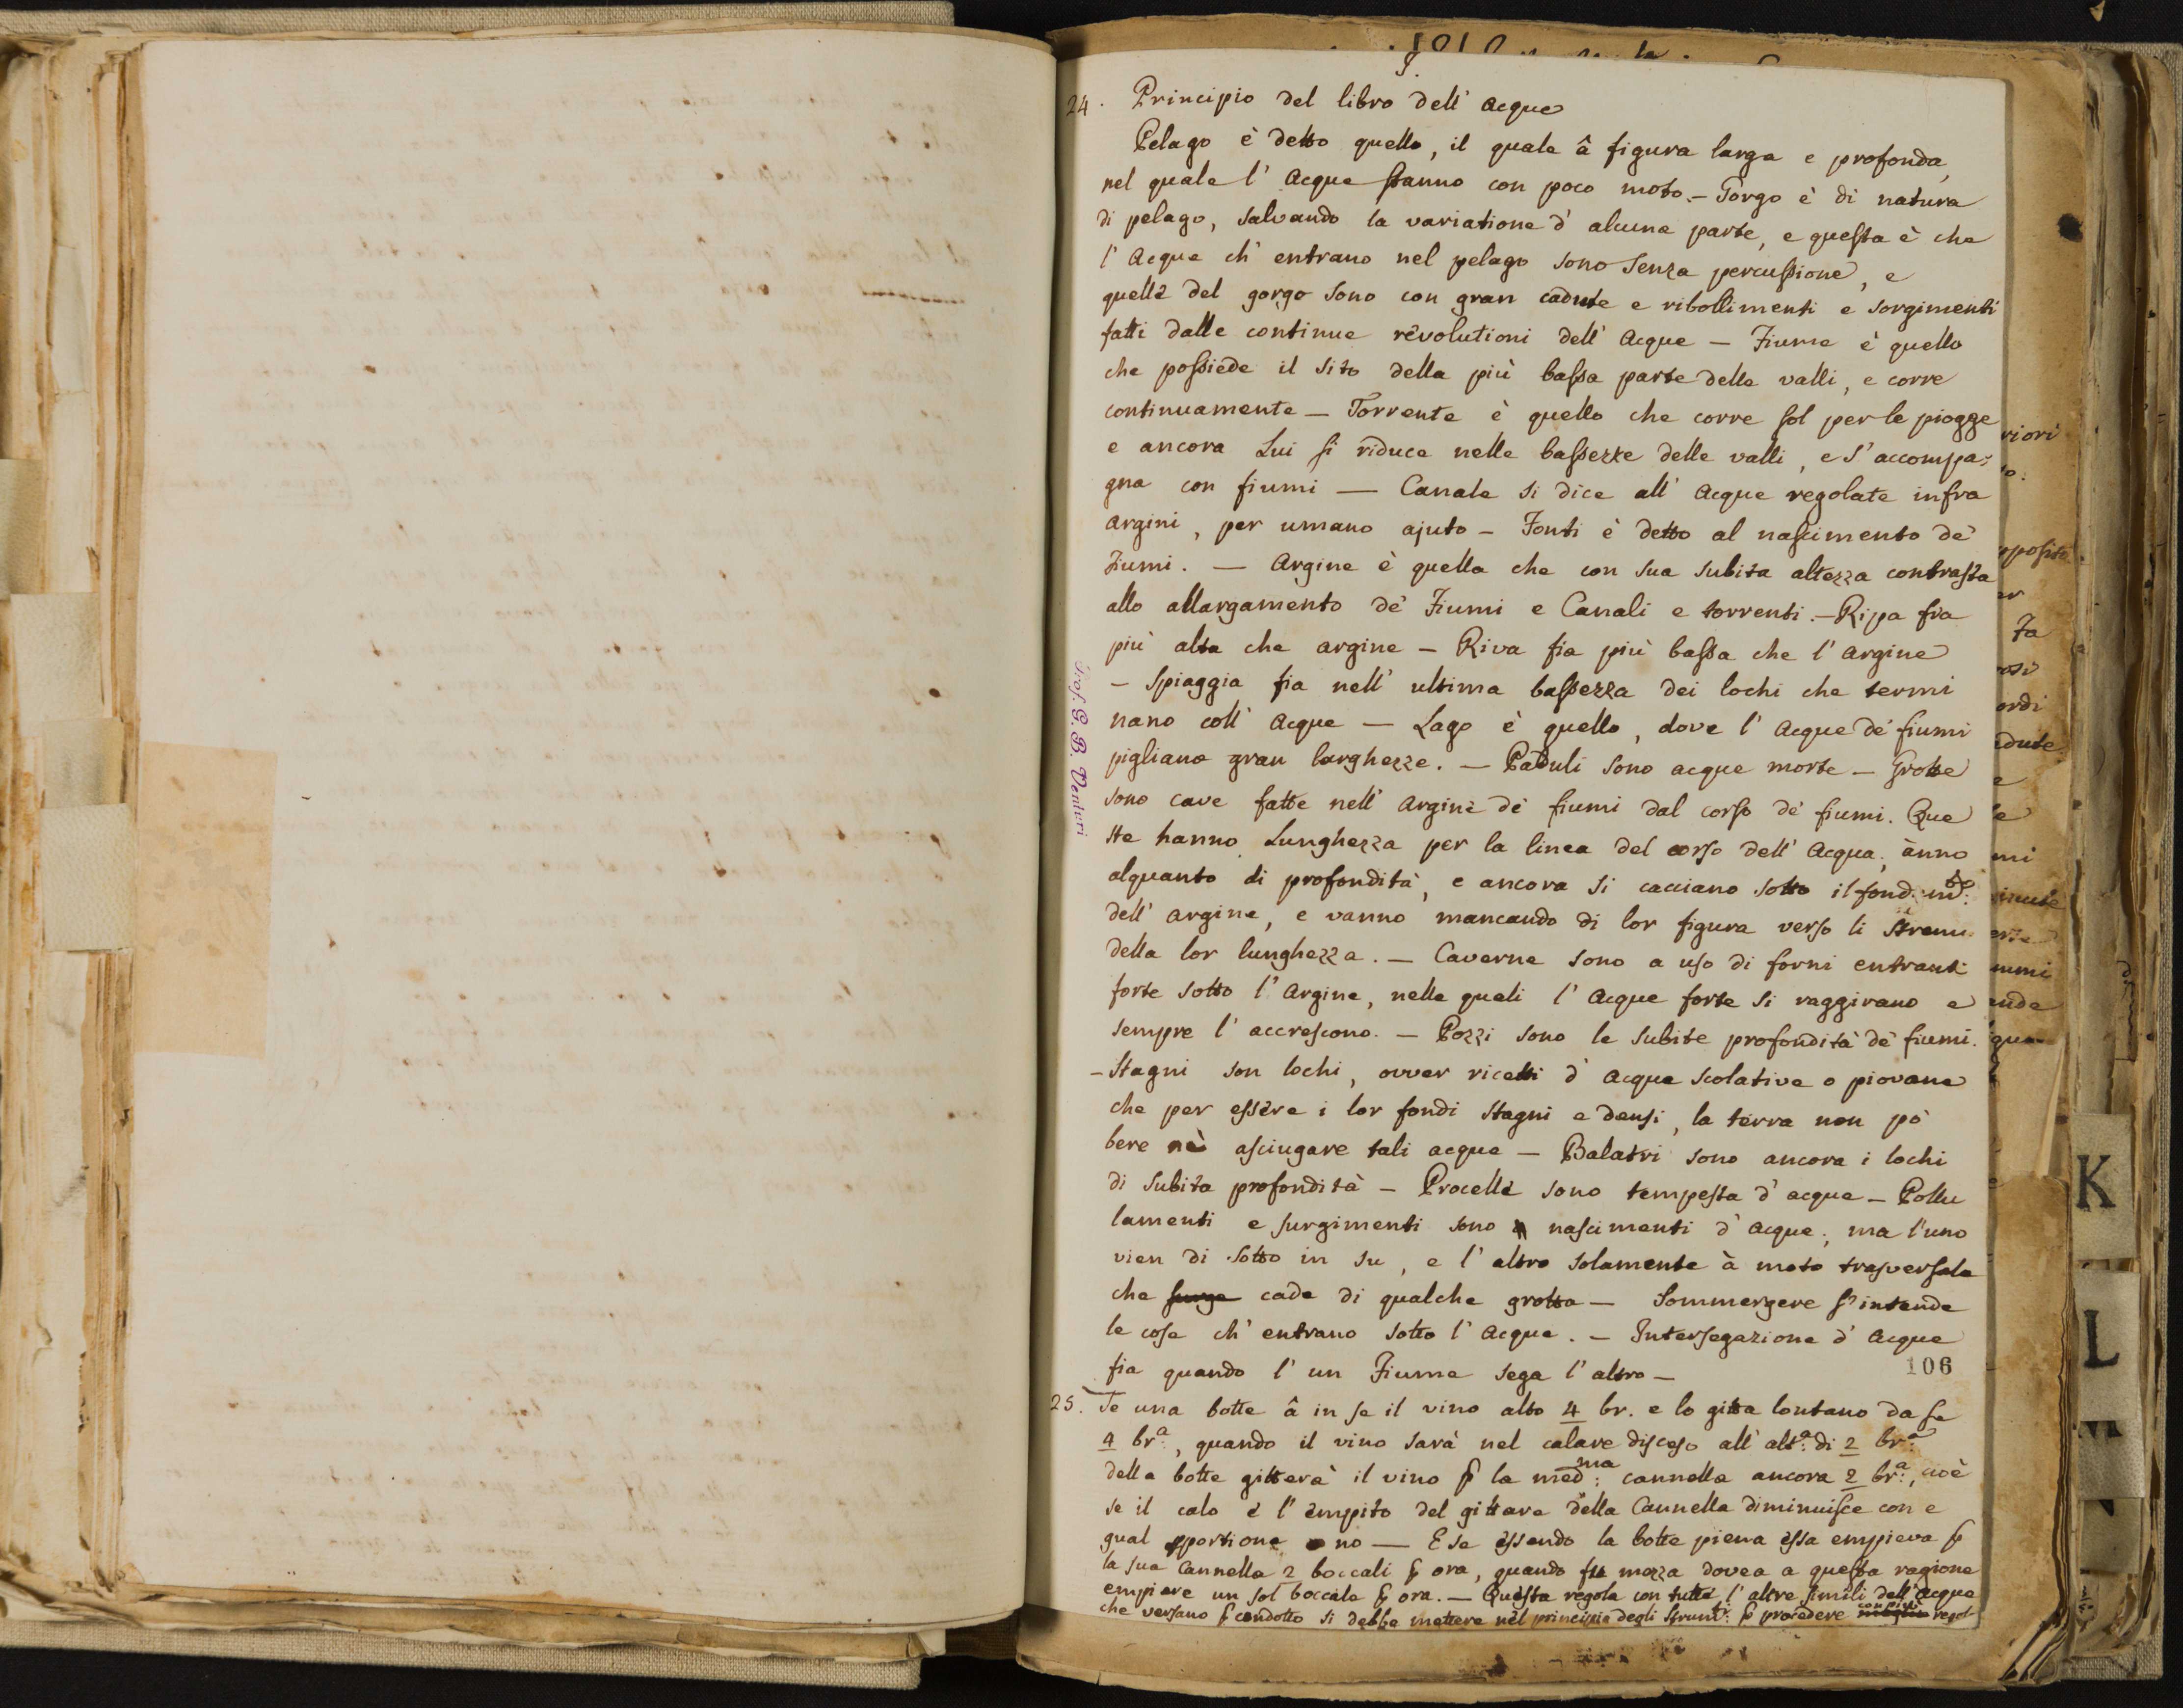 J.
24. Principio del libro dell' acque
Pelago è detto quello, il quale â figura larga e profonda,
nel quale l' Acque stanno con poco moto. — Gorgo è di natura
di pelago, salvando la variatione d' alcuna parte, e questa è che
l' Acque ch' entrano nel pelago sono senza percussione, e
quelle del gorgo sono con gran cadute e ribollimenti e sorgimenti
fatti dalle continue revolutioni dell' Acque — Fiume è quello
che possiede il sito della più bassa parte delle valli, e corre
continuamente — Torrente è quello che corre sol per le piogge
e ancora Lui si riduce nelle bassezze delle valli, e s' accompa=
gna con fiumi — Canale si dice all' Acque regolate infra
argini, per umano ajuto — Fonti è detto al nascimento de'
Fiumi. — Argine è quella che con sua subita altezza contrasta
allo allargamento de' Fiumi e Canali e torrenti. — Ripa fia
più alta che argine — Riva fia più bassa che l' argine
— Spiaggia fia nell' ultima bassezza dei lochi che termi
nano coll' Acque — Lago è quello, dove l' Acque de' fiumi
pigliano gran larghezze. — Paduli sono acque morte — Grotte
sono cave fatte nell' Argine de' fiumi dal corso de' fiumi. Que
ste hanno Lunghezza per la linea del corso dell' Acqua, ànno
alquanto di profondità, e ancora si cacciano sotto il fond.m.to:
dell' argine, e vanno mancando di lor figura verso li stremi
della lor lunghezza. — Caverne sono a uso di forni entranti
forte sotto l' Argine, nelle quali l' Acque forte si raggirano e
sempre l' accrescono. — Pozzi sono le subite profondità de' fiumi.
— Stagni son lochi, ovver ricetti d' acque scolative o piovane
che per essere i lor fondi stagni e densi, la terra non pò
bere nè asciugare tali acque — Balatri sono ancora i lochi
di subita profondità — Procelle sono tempesta d' acque — Pollu
lamenti e surgimenti sono nascimenti d' Acque; ma l'uno
vien di sotto in su, e l' altro solamente à moto trasversale
che surge cade di qualche grotta — Sommergere s' intende
le cose ch' entrano sotto l' Acque. — Intersegazione d' Acque
fia quando l' un Fiume sega l' altro —
106
25. Se una botte â in se il vino alto 4 br. e lo gitta lontano da se
4 br.a, quando il vino sarà nel calare disceso all' alt.a di 2 br.a
della botte gitterà il vino p la med.ma: cannella ancora 2 br.a, cioè
se il calo e l' empito del gittare della Cannella diminuisce con e
gual pportione o no — E se essendo la botte piena essa empieva p
la sua Cannella 2 boccali p ora, quando fu mezza dovea a questa ragione
empiere un sol boccale p ora. — Questa regola con tutte l' altre simili dell' Acque
che versano p condotto si debbe mettere nel principio degli strum.ti: p procedere con più regol
Prof. G. B. Venturi
riori
o.
pposite
er
Fa
ordi
adute
e
le
mi
inute
umi
nde
qua
K
L